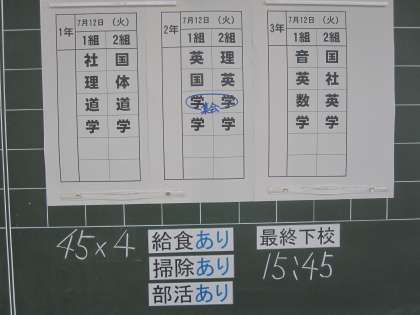 1年 7月12日 (火)
1組 2組
社 国
理 体
道 道
学 学
2年 7月12日 (火)
1組 2組
英 理
国 英
学 学
集会
学 学
3年 7月12日 (火)
1組 2組
音 国
英 社
数 英
学 学
45×4
給食あり
掃除あり
部活あり
最終下校
15:45